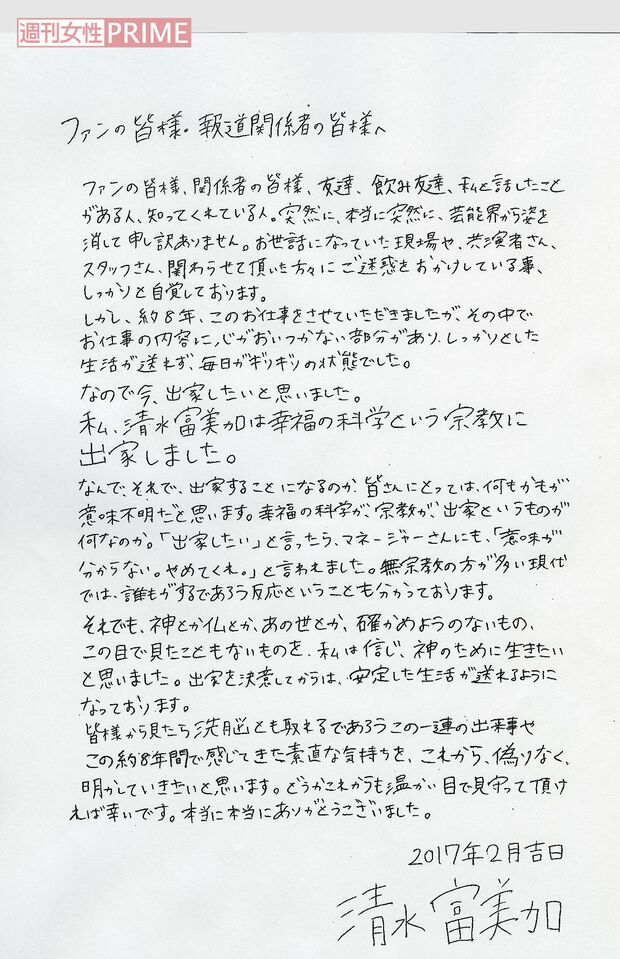 週刊女性PRIME
ファンの皆様。報道関係者の皆様へ
ファンの皆様、関係者の皆様、友達、飲み友達、私と話したこと
がある人、知ってくれている人。突然に、本当に突然に、芸能界から姿を
消して申し訳ありません。お世話になっていた現場や、共演者さん、
スタッフさん、関わらせて頂いた方々にご迷惑をおかけしている事、
しっかりと自覚しております。
しかし、約8年、このお仕事をさせていただきましたが、その中で
お仕事の内容に心がおいつかない部分があり、しっかりとした
生活が送れず、毎日がギリギリの状態でした。
なので今、出家したいと思いました。
私、清水富美加は幸福の科学という宗教に
出家しました。
なんで、それで、出家することになるのか、皆さんにとっては、何もかもが
意味不明だと思います。幸福の科学が、宗教が、出家というものが
何なのか。「出家したい」と言ったら、マネージャーさんにも、「意味が
分からない。やめてくれ。」と言われました。無宗教の方が多い現代
では、誰もがするであろう反応ということも分かっております。
それでも、神とか仏とか、あの世とか、確かめようのないもの、
この目で見たこともないものを、私は信じ、神のために生きたい
と思いました。出家を決意してからは、安定した生活が送れるように
なっております。
皆様から見たら洗脳とも取れるであろうこの一連の出来事や
この約8年間で感じてきた素直な気持ちを、これから、偽りなく、
明かしていきたいと思います。どうかこれからも温かい目で見守って頂け
れば幸いです。本当に本当にありがとうございました。
2017年2月吉日
清水富美加